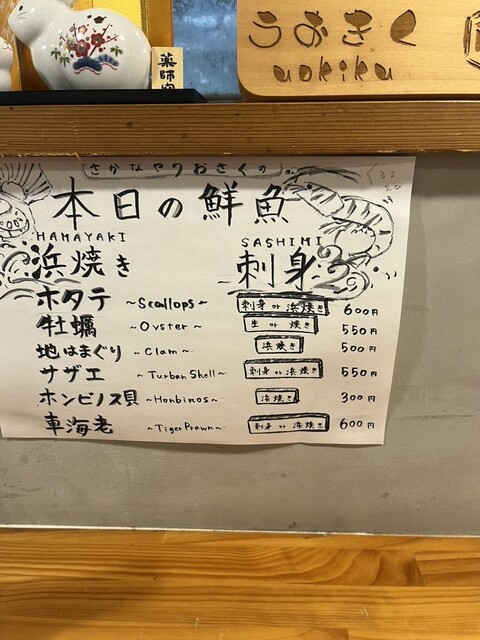 うおきく
uokiku
薬師寺
さかなやうおきくの
本日の鮮魚
HAMAYAKI
浜焼き
SASHIMI
刺身
ホタテ ~Scallops~ 刺身 or 浜焼き 600円
牡蠣 ~Oyster~ 生 or 焼き 550円
地はまぐり ~Clam~ 浜焼き 500円
サザエ ~Turban Shell~ 刺身 or 浜焼き 550円
ホンビノス貝 ~Honbinos~ 浜焼き 300円
車海老 ~Tiger Prawn~ 刺身 or 浜焼き 600円